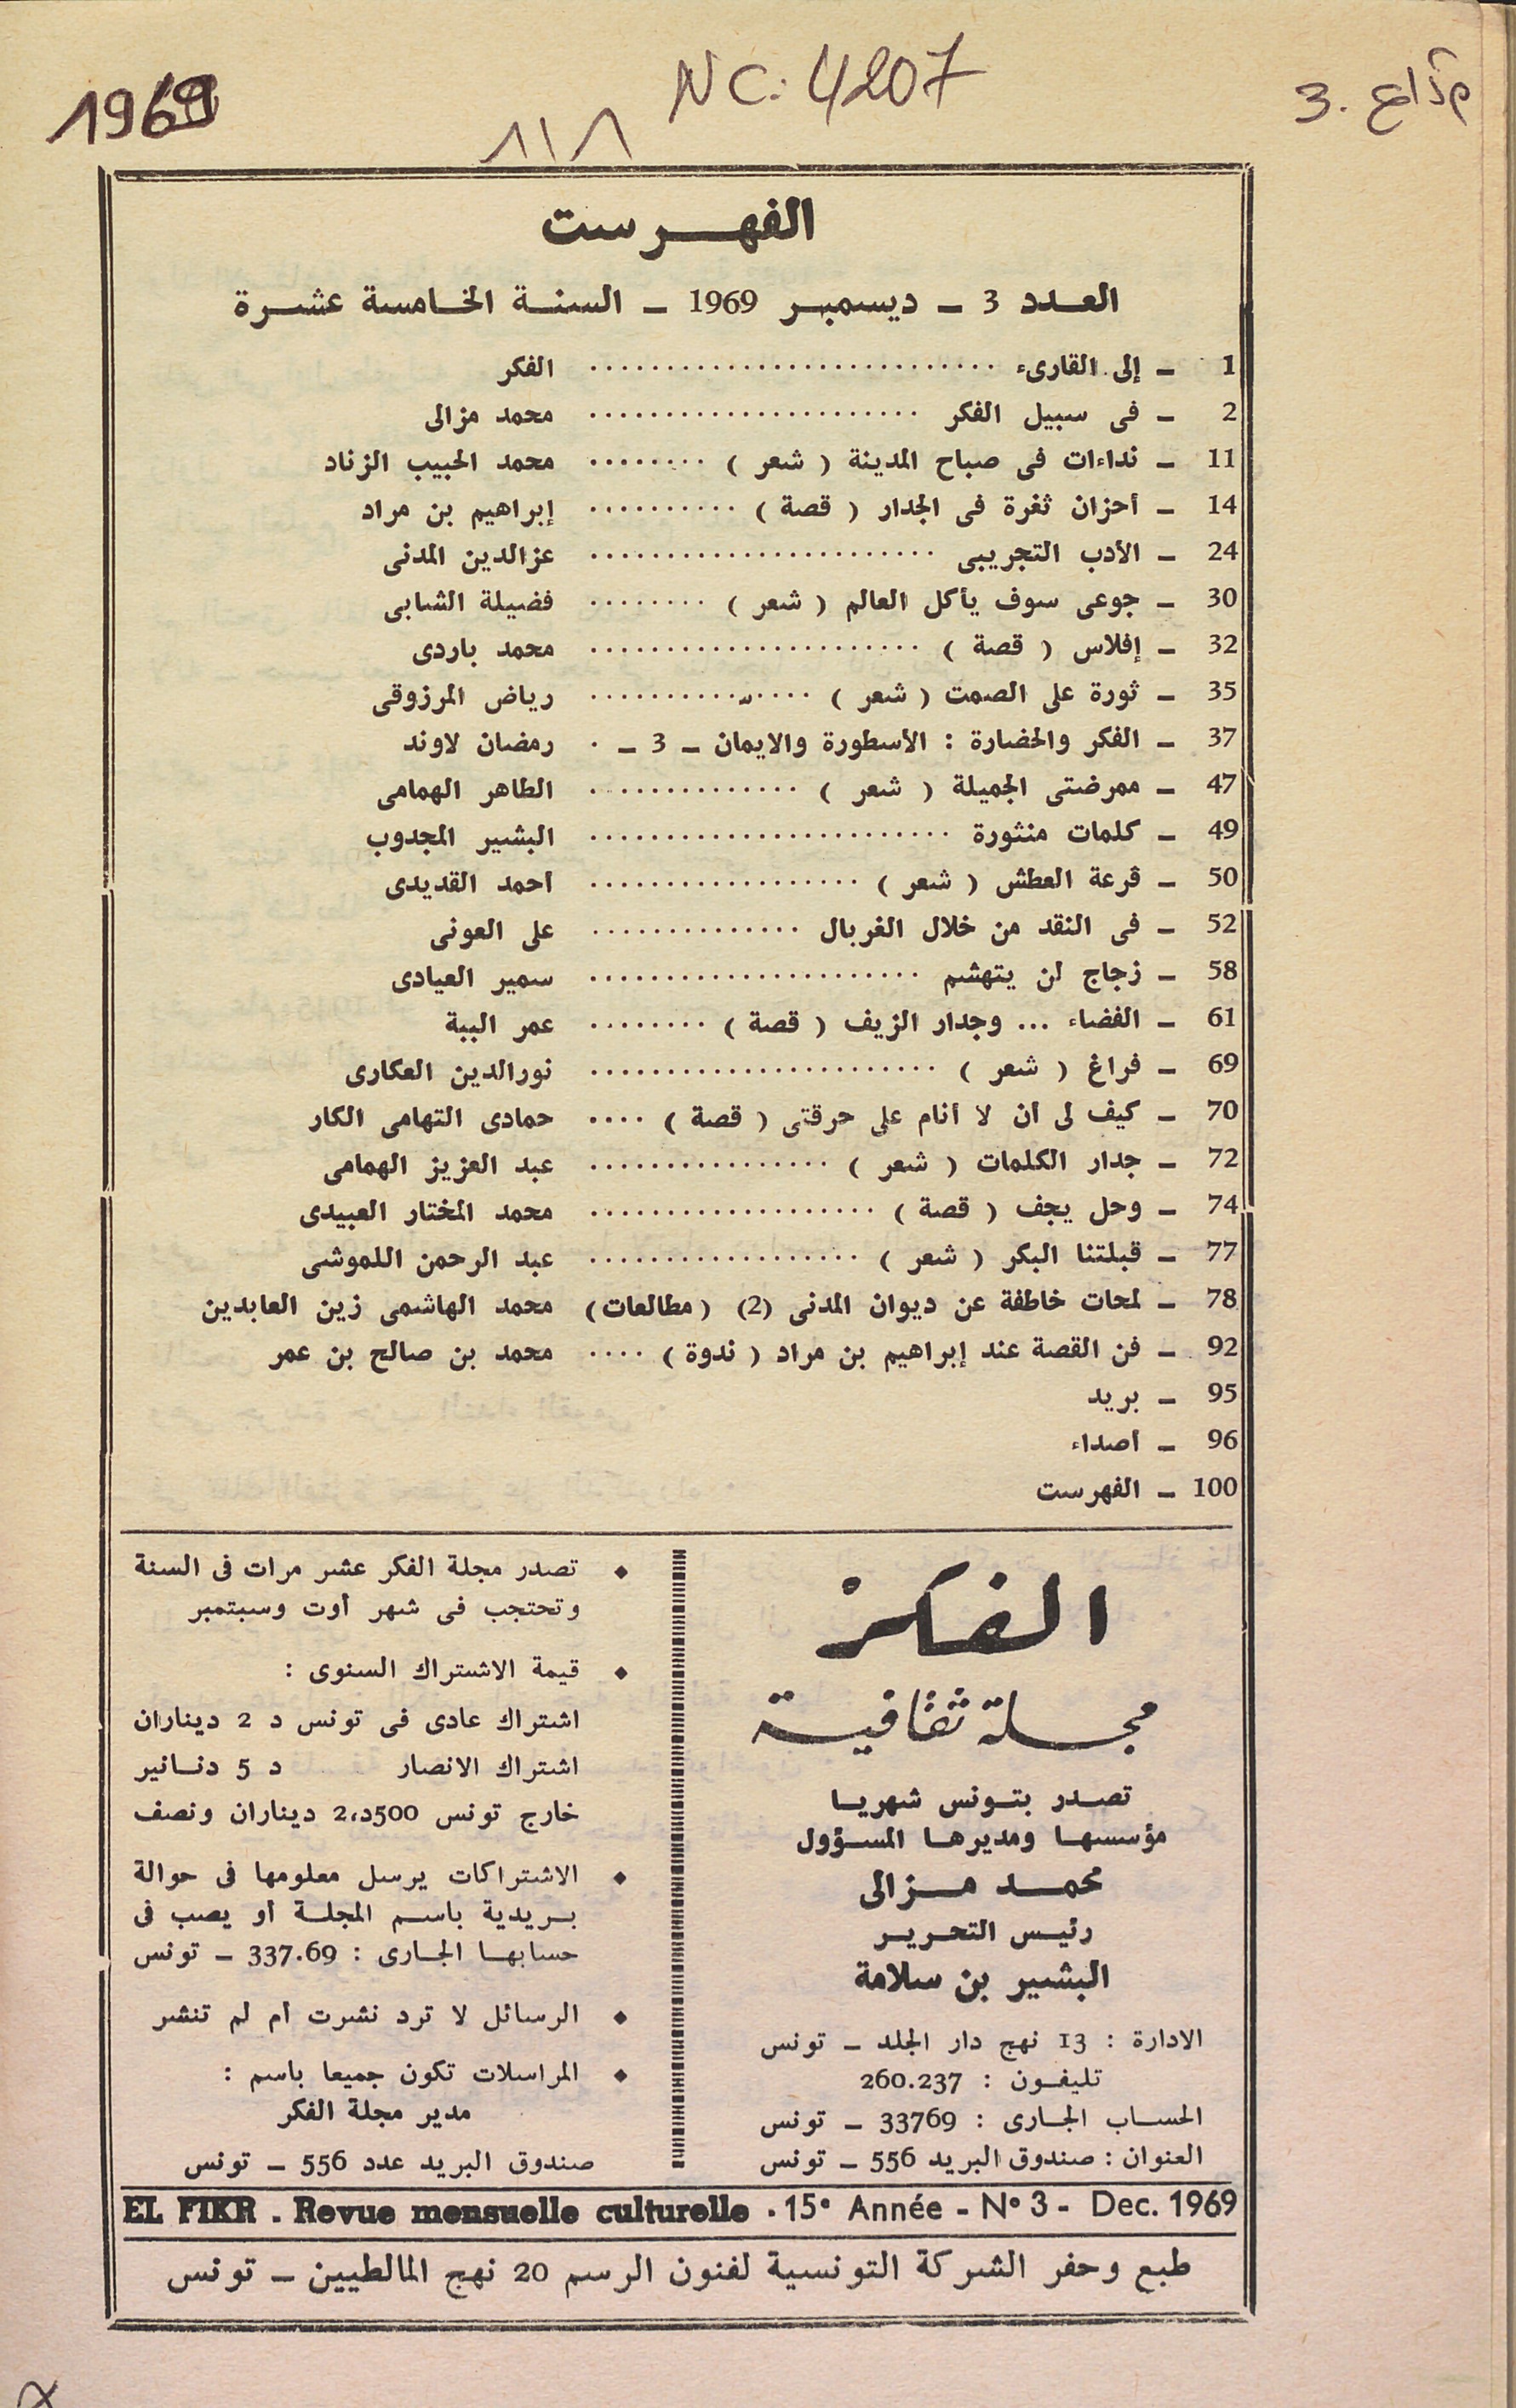 1969
NC: 4207
111
3.
الفهرست
العدد 3 ـ ديسمبر 1969 ـ السنة الخامسة عشرة
1 ـ إلى القارىء ........................... الفكر
2 ـ فى سبيل الفكر ...................... محمد مزالى
11 ـ نداءات فى صباح المدينة ( شعر ) ........ محمد الحبيب الزناد
14 ـ أحزان ثغرة فى الجدار ( قصة ) .......... إبراهيم بن مراد
24 ـ الأدب التجريبى ....................... عزالدين المدنى
30 ـ جوعى سوف يأكل العالم ( شعر ) ........ فضيلة الشابى
32 ـ إفلاس ( قصة ) ...................... محمد باردى
35 ـ ثورة على الصمت ( شعر ) ............... رياض المرزوقى
37 ـ الفكر والحضارة : الأسطورة والايمان ـ 3 ـ . رمضان لاوند
47 ـ ممرضتى الجميلة ( شعر ) .............. الطاهر الهمامى
49 ـ كلمات منثورة ........................ البشير المجدوب
50 ـ قرعة العطش ( شعر ) .................. أحمد القديدى
52 ـ فى النقد من خلال الغربال .............. على العونى
58 ـ زجاج لن يتهشم ...................... سمير العيادى
61 ـ الفضاء ... وجدار الزيف ( قصة ) ........ عمر الببة
69 ـ فراغ ( شعر ) ....................... نورالدين العكارى
70 ـ كيف لى أن لا أنام على حرقتى ( قصة ) .... حمادى التهامى الكار
72 ـ جدار الكلمات ( شعر ) ................ عبد العزيز الهمامى
74 ـ وحل يجف ( قصة ) ................... محمد المختار العبيدى
77 ـ قبلتنا البكر ( شعر ) .................. عبد الرحمن اللموشى
78 ـ لمحات خاطفة عن ديوان المدنى (2) (مطالعات) محمد الهاشمى زين العابدين
92 ـ فن القصة عند إبراهيم بن مراد ( ندوة ) .... محمد بن صالح بن عمر
95 ـ بريد
96 ـ أصداء
100 ـ الفهرست
الفكر
مجلة ثقافية
تصدر بتونس شهريا
مؤسسها ومديرها المسؤول
محمد مزالى
رئيس التحرير
البشير بن سلامة
الادارة : 13 نهج دار الجلد ـ تونس
تليفون : 260.237
الحساب الجارى : 33769 ـ تونس
العنوان : صندوق البريد 556 ـ تونس
◆ تصدر مجلة الفكر عشر مرات فى السنة
وتحتجب فى شهر أوت وسبتمبر
◆ قيمة الاشتراك السنوى :
اشتراك عادى فى تونس د 2 ديناران
اشتراك الانصار د 5 دنانير
خارج تونس 500د،2 ديناران ونصف
◆ الاشتراكات يرسل معلومها فى حوالة
بريدية باسم المجلة أو يصب فى
حسابها الجارى : 337.69 ـ تونس
◆ الرسائل لا ترد نشرت أم لم تنشر
◆ المراسلات تكون جميعا باسم :
مدير مجلة الفكر
صندوق البريد عدد 556 ـ تونس
EL FIKR . Revue mensuelle culturelle . 15° Année - N° 3 - Dec. 1969
طبع وحفر الشركة التونسية لفنون الرسم 20 نهج المالطيين ـ تونس